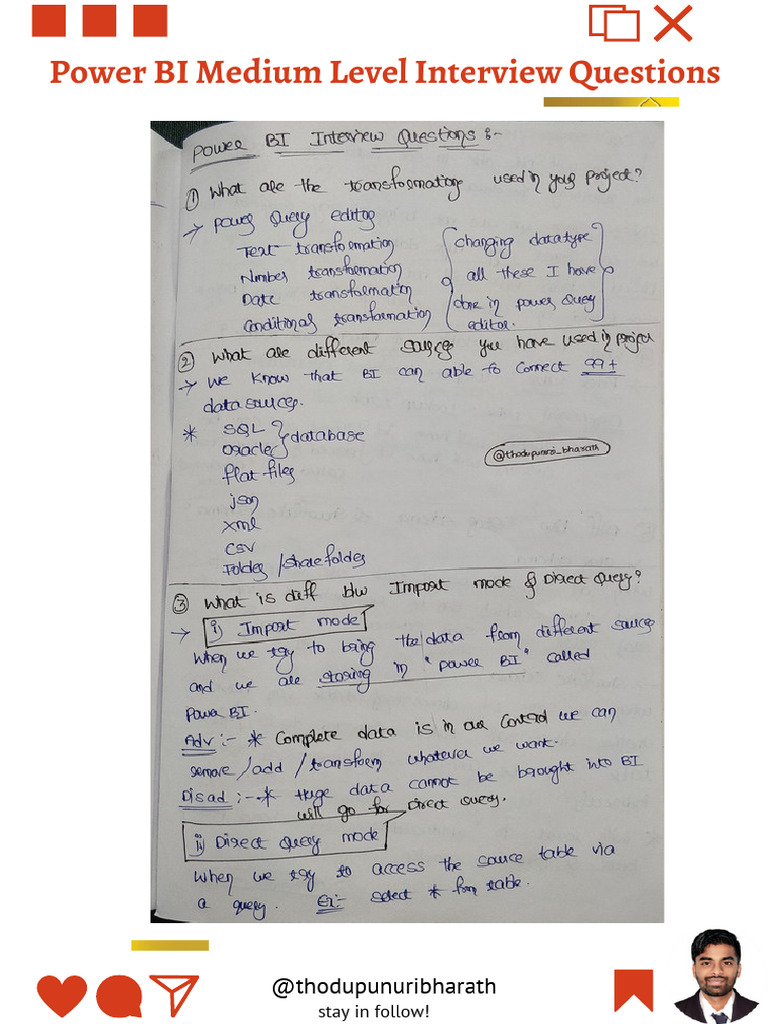 Power BI Medium Level Interview Questions
Power BI Interview Questions:-
① What are the transformations used in your project?
→ power query editor
Text transformation
Number transformation
Date transformation
Conditional transformation
changing datatype
all these I have
done in power query
editor.
② What are different sources you have used in project
→ We know that BI can able to connect 99+
data sources.
* SQL
Oracle
database
flat files
json
xml
CSV
Folder / share folder
@thodupunuri_bharath
③ What is diff b/w Import mode & Direct Query?
→ i) Import mode
When we try to bring the data from different sources
and we are storing in "power BI" called
Power BI.
Adv :- * Complete data is in our Control we can
remove / add / transform whatever we want.
Disad :- * Huge data cannot be brought into BI
will go for Direct query.
ii) Direct query mode
When we try to access the source table via
a query. Ex:- select * from table.
@thodupunuribharath
stay in follow!